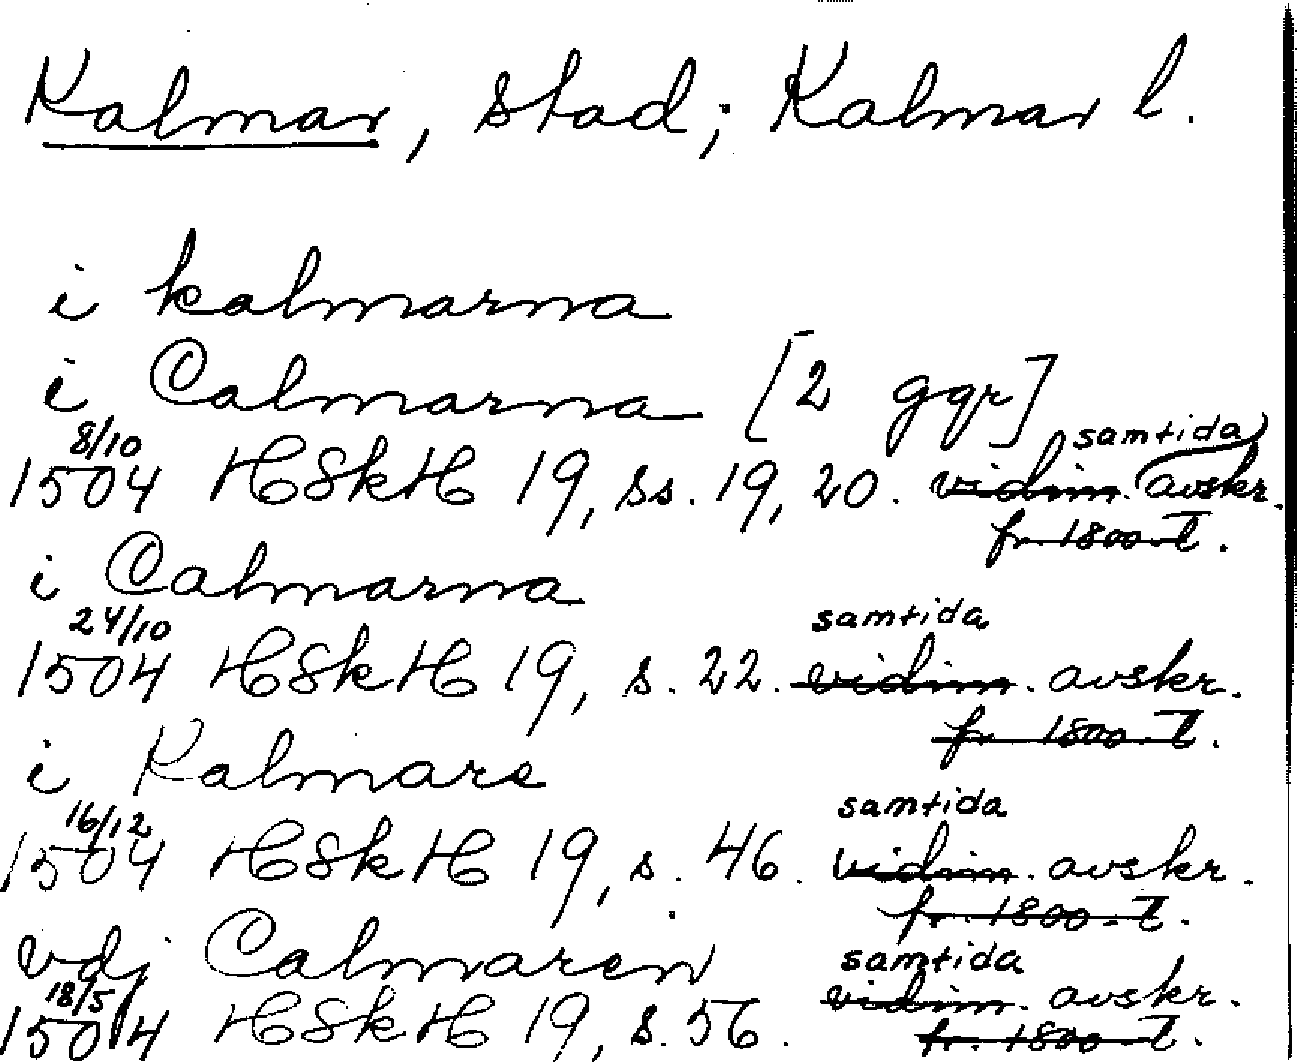 Kalmar, stad; Kalmar l.
i kalmarna
i Calmarna [2 ggr]
8/10 samtida
1504 HSkH 19, ss. 19, 20. vidim. avskr.
fr. 1800-t.
i Calmarna
24/10 samtida
1504 HSkH 19, s. 22. vidim. avskr.
fr. 1800-t.
i Kalmare
16/12 samtida
1504 HSkH 19, s. 46. vidim. avskr.
fr. 1800-t.
vdj Calmaren samtida
18/5 vidim. avskr.
1504 HSkH 19, s. 56. fr. 1800-t.